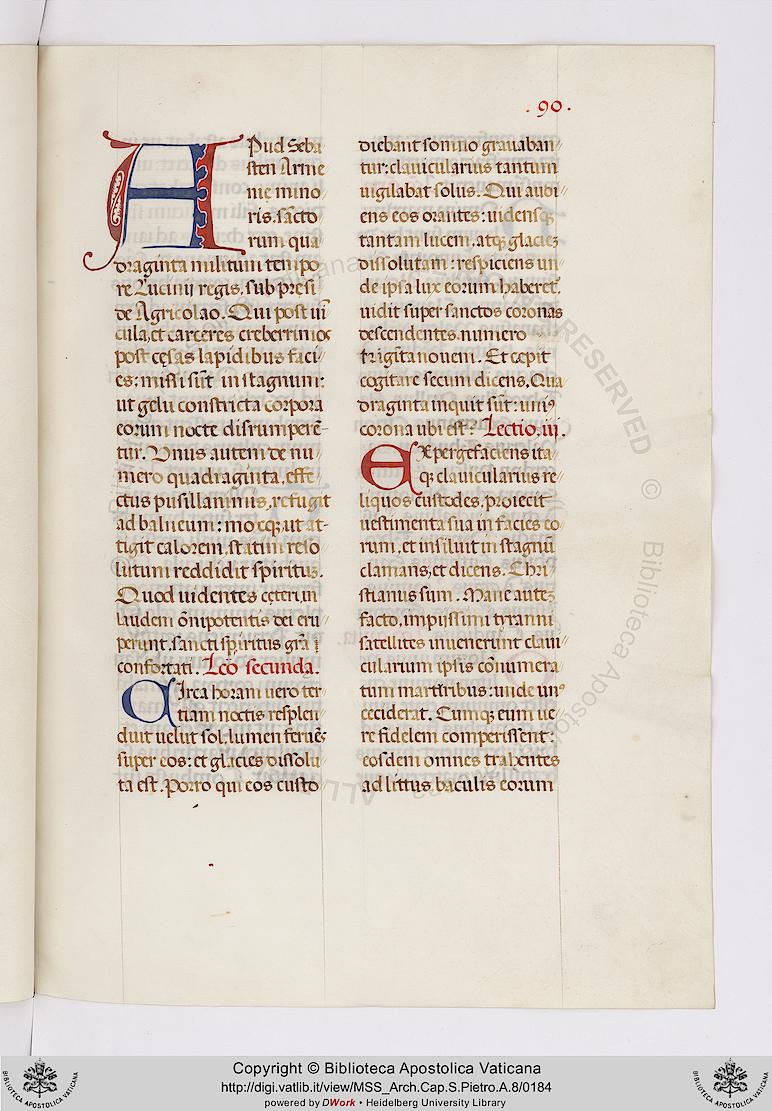 .90.
APud Seba
sten Arme
nie mino
ris. sācto
rum qua
draginta militum tempo
re Lucinij regis, sub presi
de Agricolao. Qui post uī
cula, et carceres creberrimos
post cęsas lapidibus faci
es: missi sūt in stagnum:
ut gelu constricta corpora
eorum nocte disrumperē-
tur. Vnus autem de nu
mero quadraginta, effe
ctus pusillanimus, refugit
ad balneum: moxqȝ ut at-
tigit calorem, statim reso
lutum reddidit spirituȝ.
Quod uidentes cęteri, in
laudem ōnipotentis dei eru
perunt, sancti spiritus grā ī
confortati. Lc̄o secunda.
CIrca horam uero ter
tiam noctis resplen
duit uelut sol, lumen feruēs
super eos: et glacies dissolu
ta est. Porro qui eos custo
diebant somno grauaban
tur: clauicularius tantum
uigilabat solus. Qui audi
ens eos orantes: uidensqȝ
tantam lucem, atqȝ glacieȝ
dissolutam: respiciens un
de ipsa lux eorum haberet.
uidit super sanctos coronas
descendentes. numero
trigīta nouem. Et cępit
cogitare secum dicens. Qua
draginta inquit sūt: uniꝰ
corona ubi est? Lectio. iij.
EXpergefaciens ita
qȝ clauicularius re
liquos custodes, proiecit
uestimenta sua in facies eo
rum, et insiluit in stagnū
clamans, et dicens. Chri
stianus sum. Mane auteȝ
facto, impiissimi tyranni
satellites inuenerunt claui
cularium ipsis cōnumera
tum martiribus: unde unꝰ
ceciderat. Cumqȝ eum ue
re fidelem comperissent:
eosdem omnes trahentes
ad littus, baculis eorum
Copyright © Biblioteca Apostolica Vaticana
http://digi.vatlib.it/view/MSS_Arch.Cap.S.Pietro.A.8/0184
powered by DWork • Heidelberg University Library